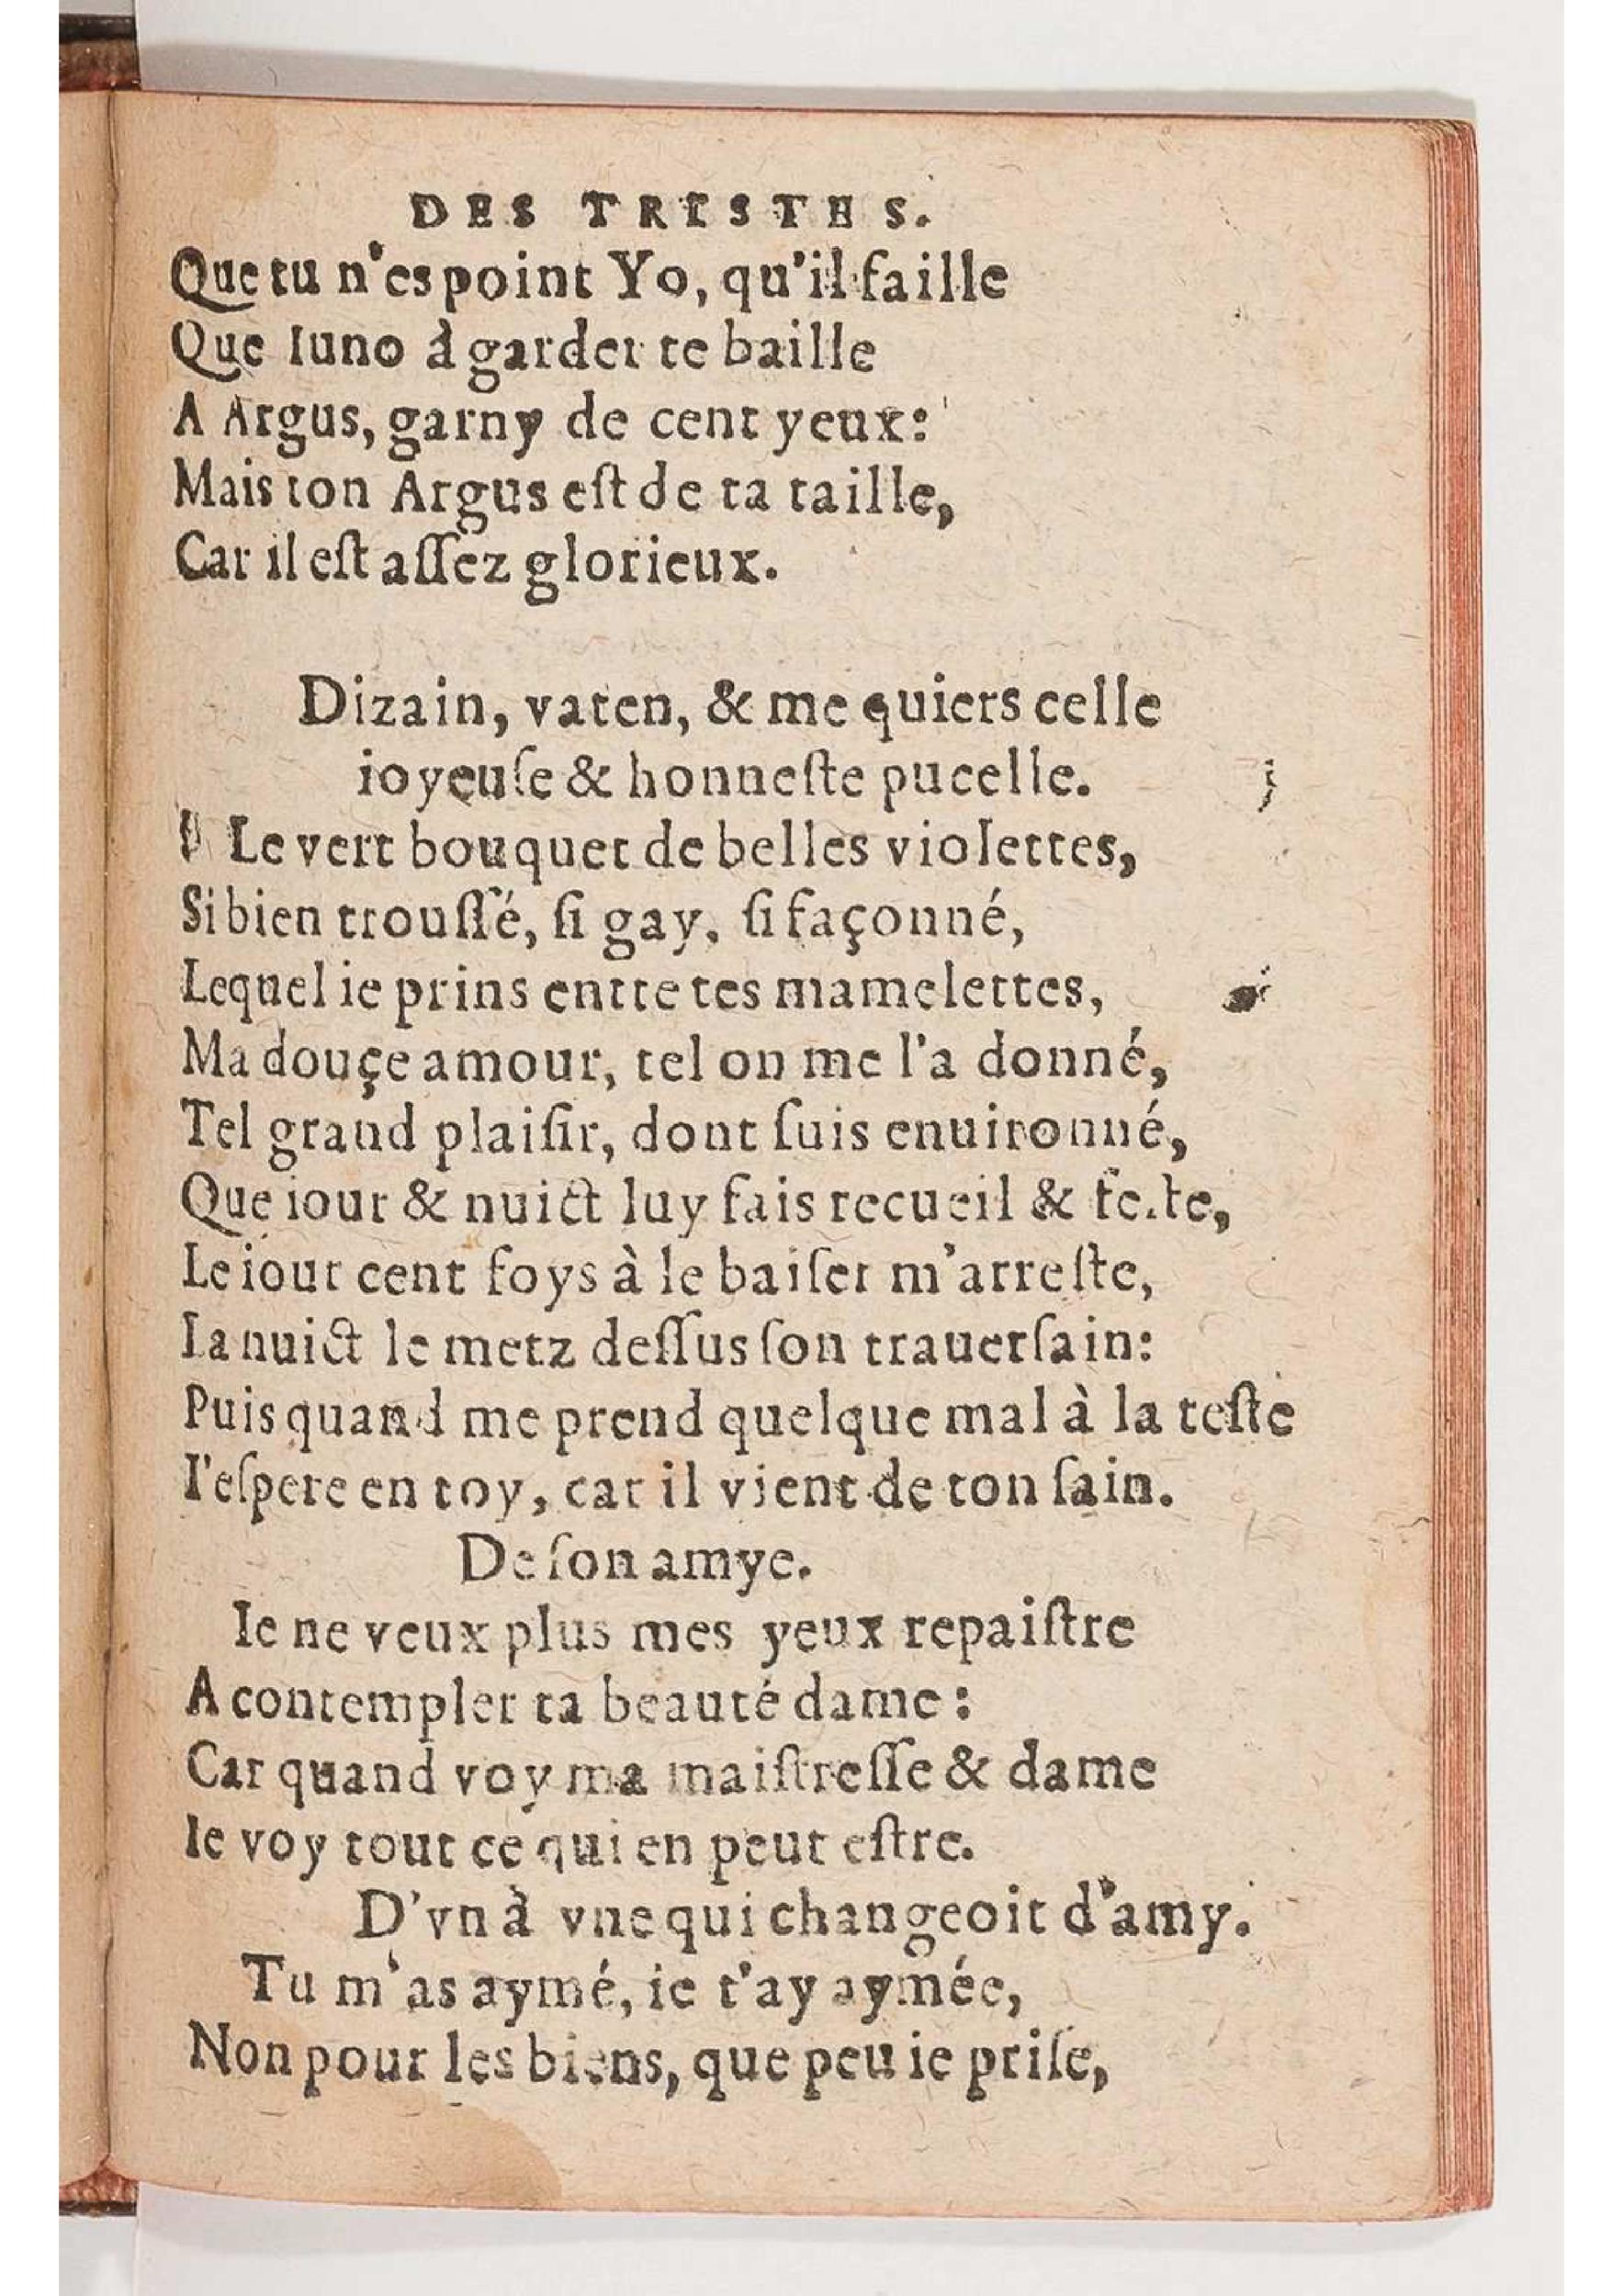 DES TRISTES.
Que tu n'es point Yo, qu'il faille
Que Iuno à garder te baille
A Argus, garny de cent yeux:
Mais ton Argus eſt de ta taille,
Car il eſt aſſez glorieux.
Dizain, vaten, & me quiers celle
ioyeuſe & honneſte pucelle.
Le vert bouquet de belles violettes,
Si bien trouſſé, ſi gay, ſi façonné,
Lequel ie prins enttte tes mamelettes,
Ma douçe amour, tel on me l'a donné,
Tel grand plaiſir, dont ſuis enuironné,
Que iour & nuict luy fais recueil & feſte,
Le iour cent foys à le baiſer m'arreſte,
La nuict le metz deſſus ſon trauerſain:
Puis quand me prend quelque mal à la teſte
I'eſpere en toy, car il vient de ton ſain.
De ſon amye.
Ie ne veux plus mes yeux repaiſtre
A contempler ta beauté dame:
Car quand voy ma maiſtreſſe & dame
Ie voy tout ce qui en peut eſtre.
D'vn à vne qui changeoit d'amy.
Tu m'as aymé, ie t'ay aymée,
Non pour les biens, que peu ie priſe,